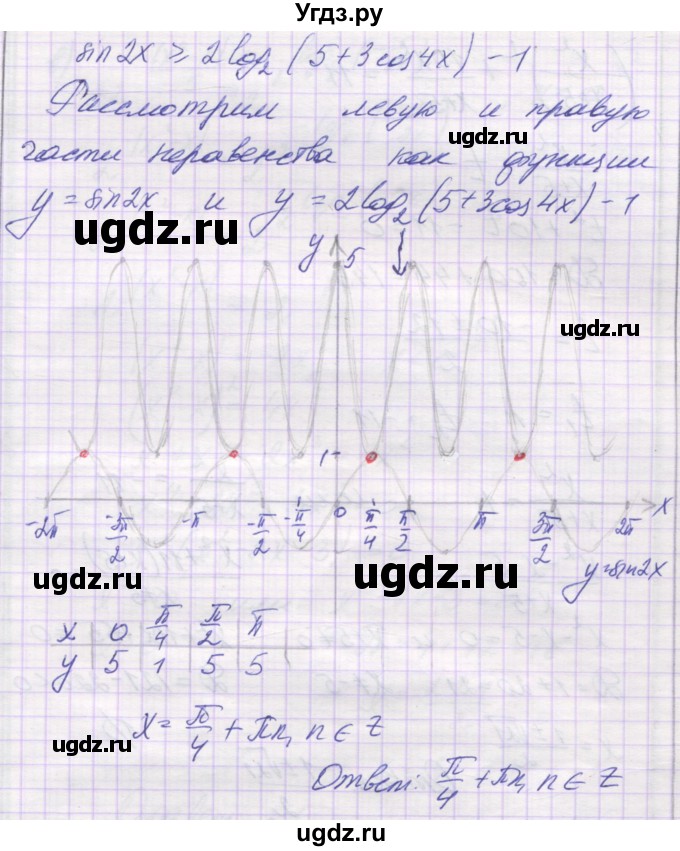 Угдз.ру
sin2x ≥ 2log₂(5+3cos4x)-1
Рассмотрим левую и правую
ugdz.ru
части неравенства как функции
y=sin2x и y=2log₂(5+3cos4x)-1
ugdz.ru
ugdz.ru
y 5
ugdz.ru
1
-2π -3π/2 -π -π/2 -π/4 0 π/4 π/2 π 3π/2 2π x
ugdz.ru ugdz.ru
y=sin2x
x 0 π/4 π/2 π
y 5 1 5 5
ugdz.ru
x = π/4 + πn, n ∈ Z
ugdz.ru
Ответ: π/4 + πn, n ∈ Z
ugdz.ru
ugdz.ru